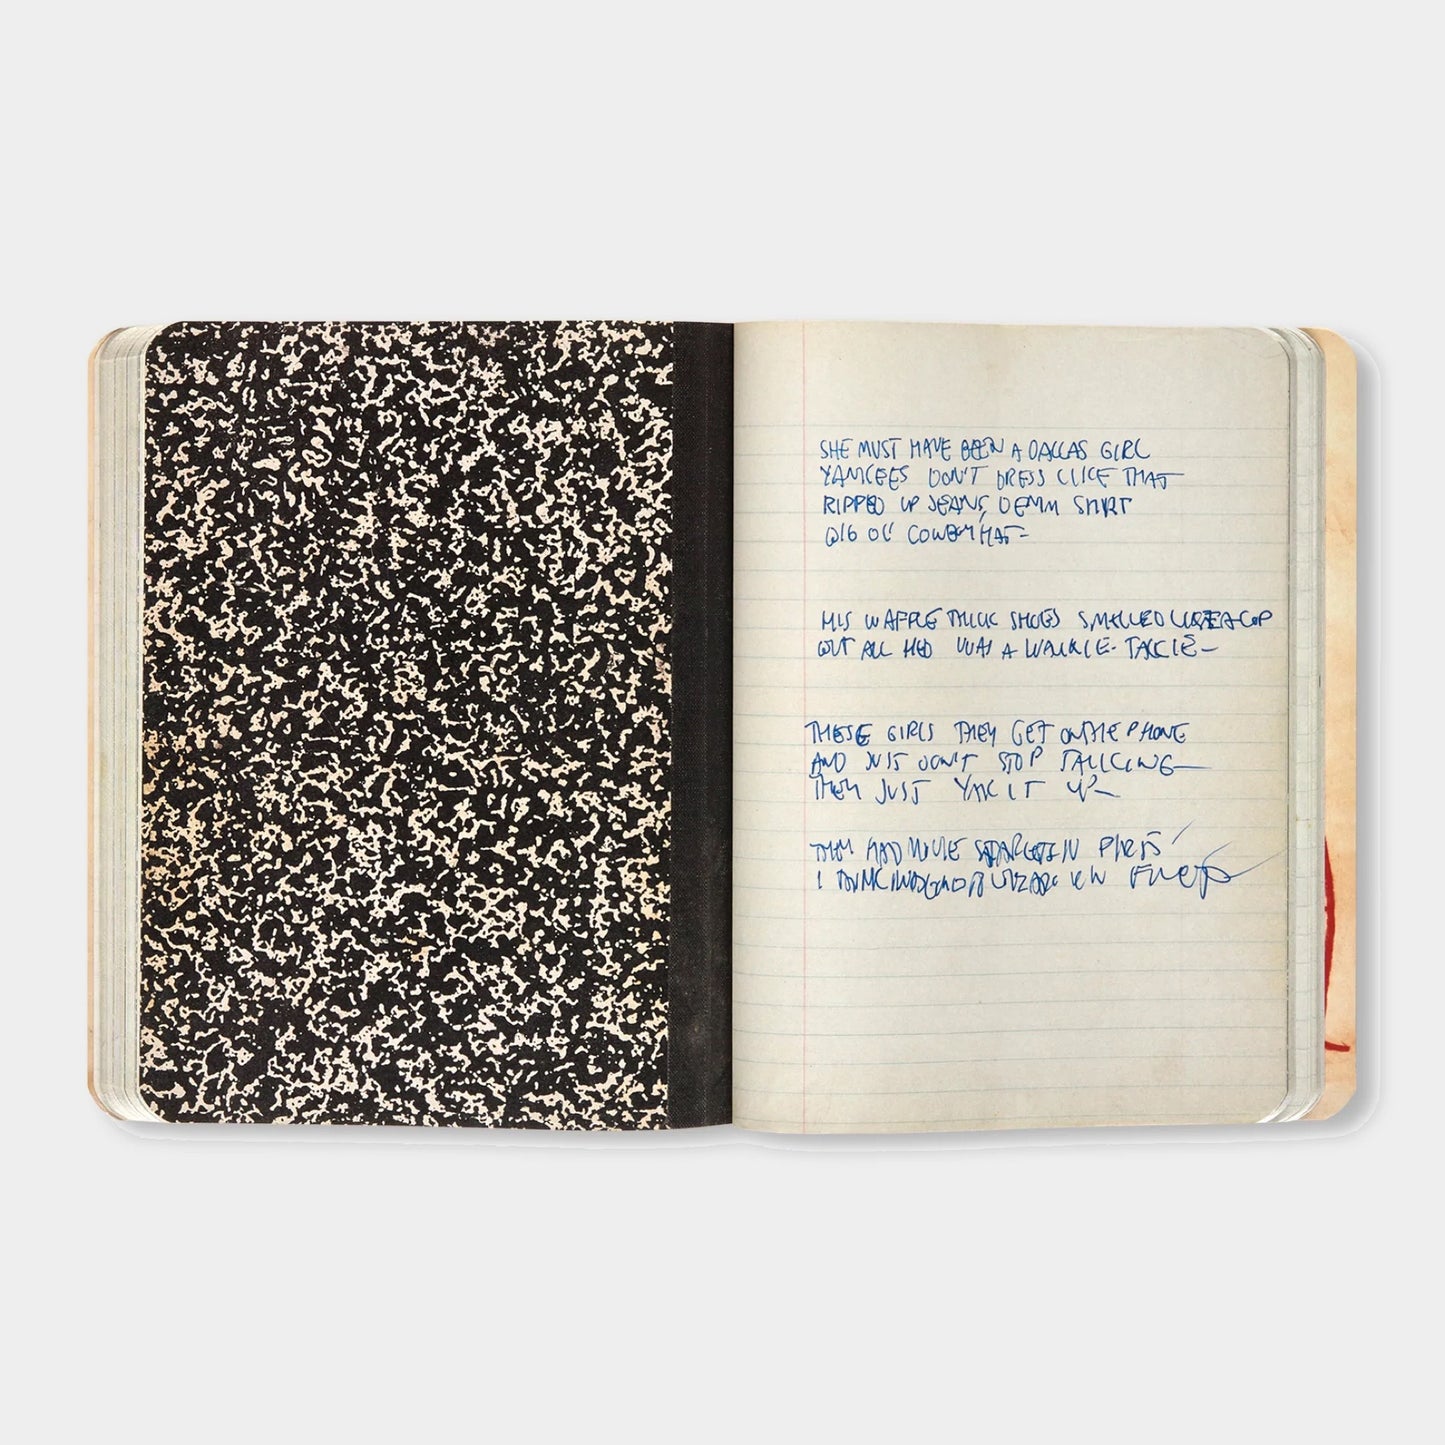 SHE MUST HAVE BEEN A DALLAS GIRL
YANKEES DON'T DRESS LIKE THAT
RIPPED UP JEANS, DENIM SHIRT
BIG OL' COWBOY HAT –
HIS WAFFLE THICK SHOES SMELLED LIKE A COP
BUT ALL HED WAS A WALKIE-TALKIE –
THESE GIRLS THEY GET ON THE PHONE
AND JUST DON'T STOP TALKING –
THEY JUST YAK IT UP –
THEY HAD MORE IN PARIS
I THINK